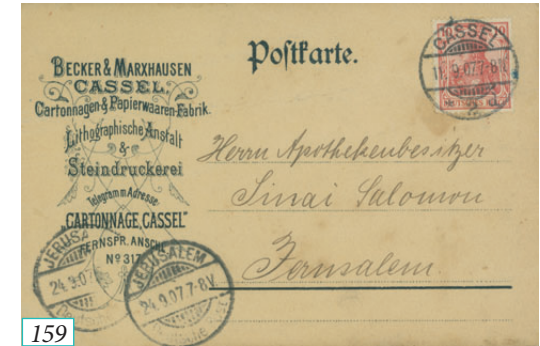 Postkarte.
BECKER & MARXHAUSEN
CASSEL.
Cartonnagen & Papierwaaren-Fabrik.
Lithographische Anstalt
&
Steindruckerei
Telegramm Adresse:
"CARTONNAGE, CASSEL"
FERNSPR. ANSCHL.
Nº 317.
CASSEL
Herrn Apothekenbesitzer
Sinai Salomon
Jerusalem.
JERUSA
24.9.07
JERUSALEM
24.9.07.7-8V.
Deutsche
159